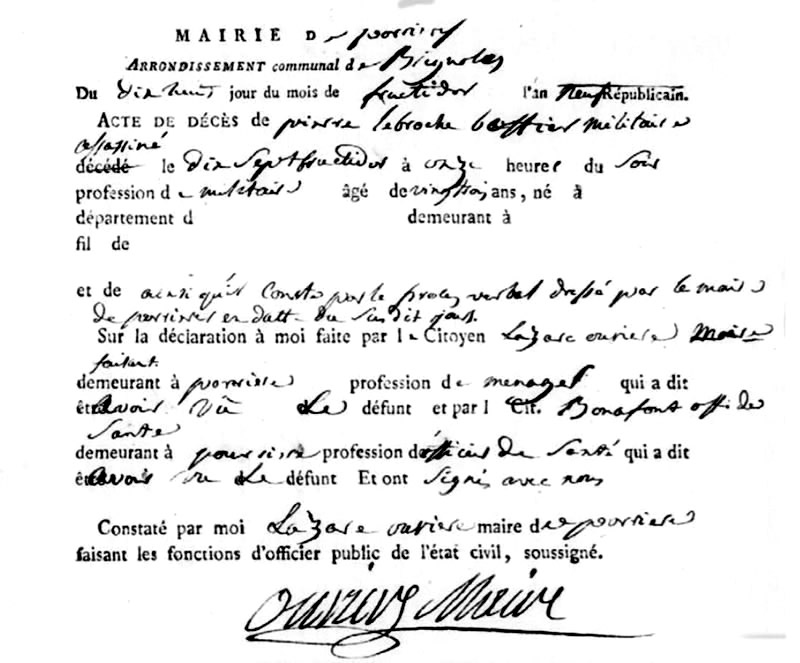 MAIRIE De pourrieres
ARRONDISSEMENT communal de Brignoles
Du dix huit jour du mois de fructidor l'an neuf Républicain.
ACTE DE DÉCÈS de pierre lebroche militaire
assassiné
décédé le dix sept fructidor à onze heures du soir
profession de militaire âgé de vingt trois ans, né à
département d demeurant à
fil de
et de ainsi qu'il Conste par le proces verbal dressé par le maire
de pourrieres en datte du susdit jour.
Sur la déclaration à moi faite par le Citoyen Lazare ouvriere Maire
demeurant à pourrieres profession de menager qui a dit
être avoir vü Le défunt et par l Cit. Bonafont offi de
Santé
demeurant à pourrieres profession d'officier de Santé qui a dit
être avoir vu Le défunt Et ont signés avec nous
Constaté par moi Lazare ouvriere maire de pourrieres
faisant les fonctions d'officier public de l'état civil, soussigné.
ouvriere Maire